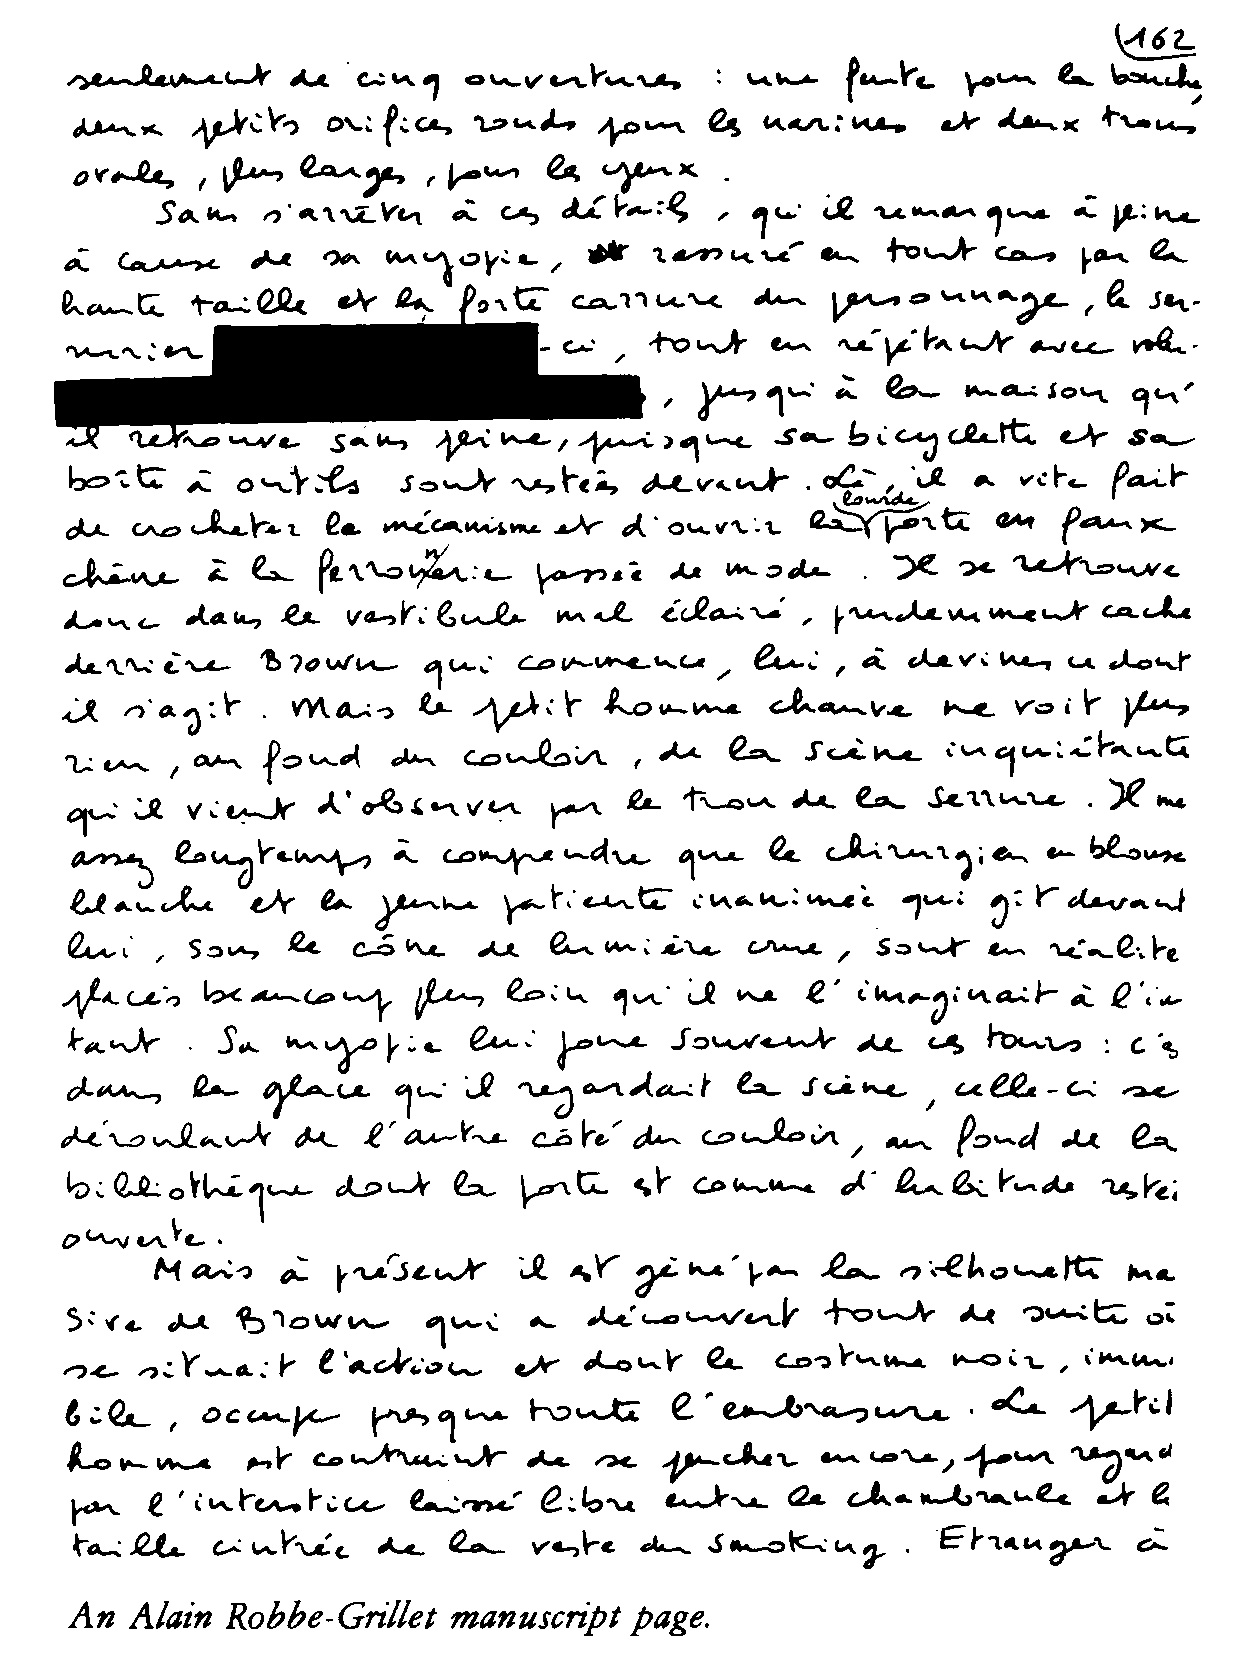 162
seulement de cinq ouvertures : une fente pour la bouche,
deux petits orifices ronds pour les narines et deux trous
ovales, plus larges, pour les yeux.
Sans s'arrêter à ces détails, qu'il remarque à peine
à cause de sa myopie, rassuré en tout cas par la
haute taille et la forte carrure du personnage, le ser-
rurier -ci, tout en répétant avec volu-
, jusqu'à la maison qu'
il retrouve sans peine, puisque sa bicyclette et sa
boîte à outils sont restées devant. Là, il a vite fait
de crocheter le mécanisme et d'ouvrir la lourde porte en faux
chêne à la ferronnerie passée de mode. Il se retrouve
donc dans le vestibule mal éclairé, prudemment caché
derrière Brown qui commence, lui, à deviner ce dont
il s'agit. Mais le petit homme chauve ne voit plus
rien, au fond du couloir, de la scène inquiétante
qu'il vient d'observer par le trou de la serrure. Il me
assez longtemps à comprendre que le chirurgien en blouse
blanche et la jeune patiente inanimée qui gît devant
lui, sous le cône de lumière crue, sont en réalité
placés beaucoup plus loin qu'il ne l'imaginait à l'in
tant. Sa myopie lui joue souvent de ces tours : c'es
dans la glace qu'il regardait la scène, celle-ci se
déroulant de l'autre côté du couloir, au fond de la
bibliothèque dont la porte est comme d'habitude restée
ouverte.
Mais à présent il est gêné par la silhouette ma
sive de Brown qui a découvert tout de suite où
se situait l'action et dont le costume noir, immo
bile, occupe presque toute l'embrasure. Le petit
homme est contraint de se pencher encore, pour regard
par l'interstice laissé libre entre le chambranle et l
taille cintrée de la veste du smoking. Etranger à
An Alain Robbe-Grillet manuscript page.